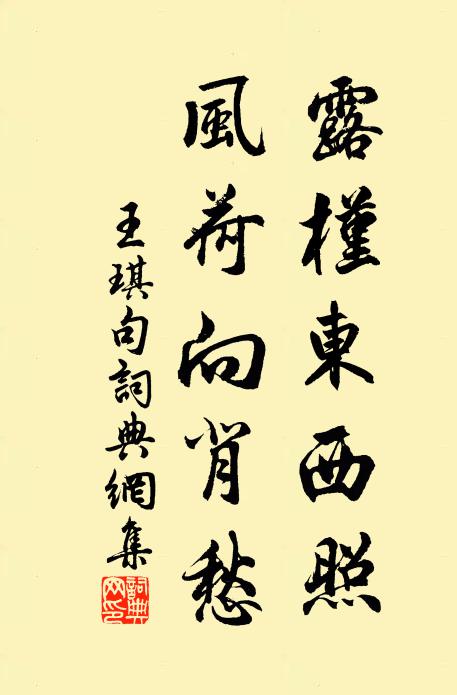 露槿東西照
風荷向背愁
王琪句詞典網集
詞典
网印